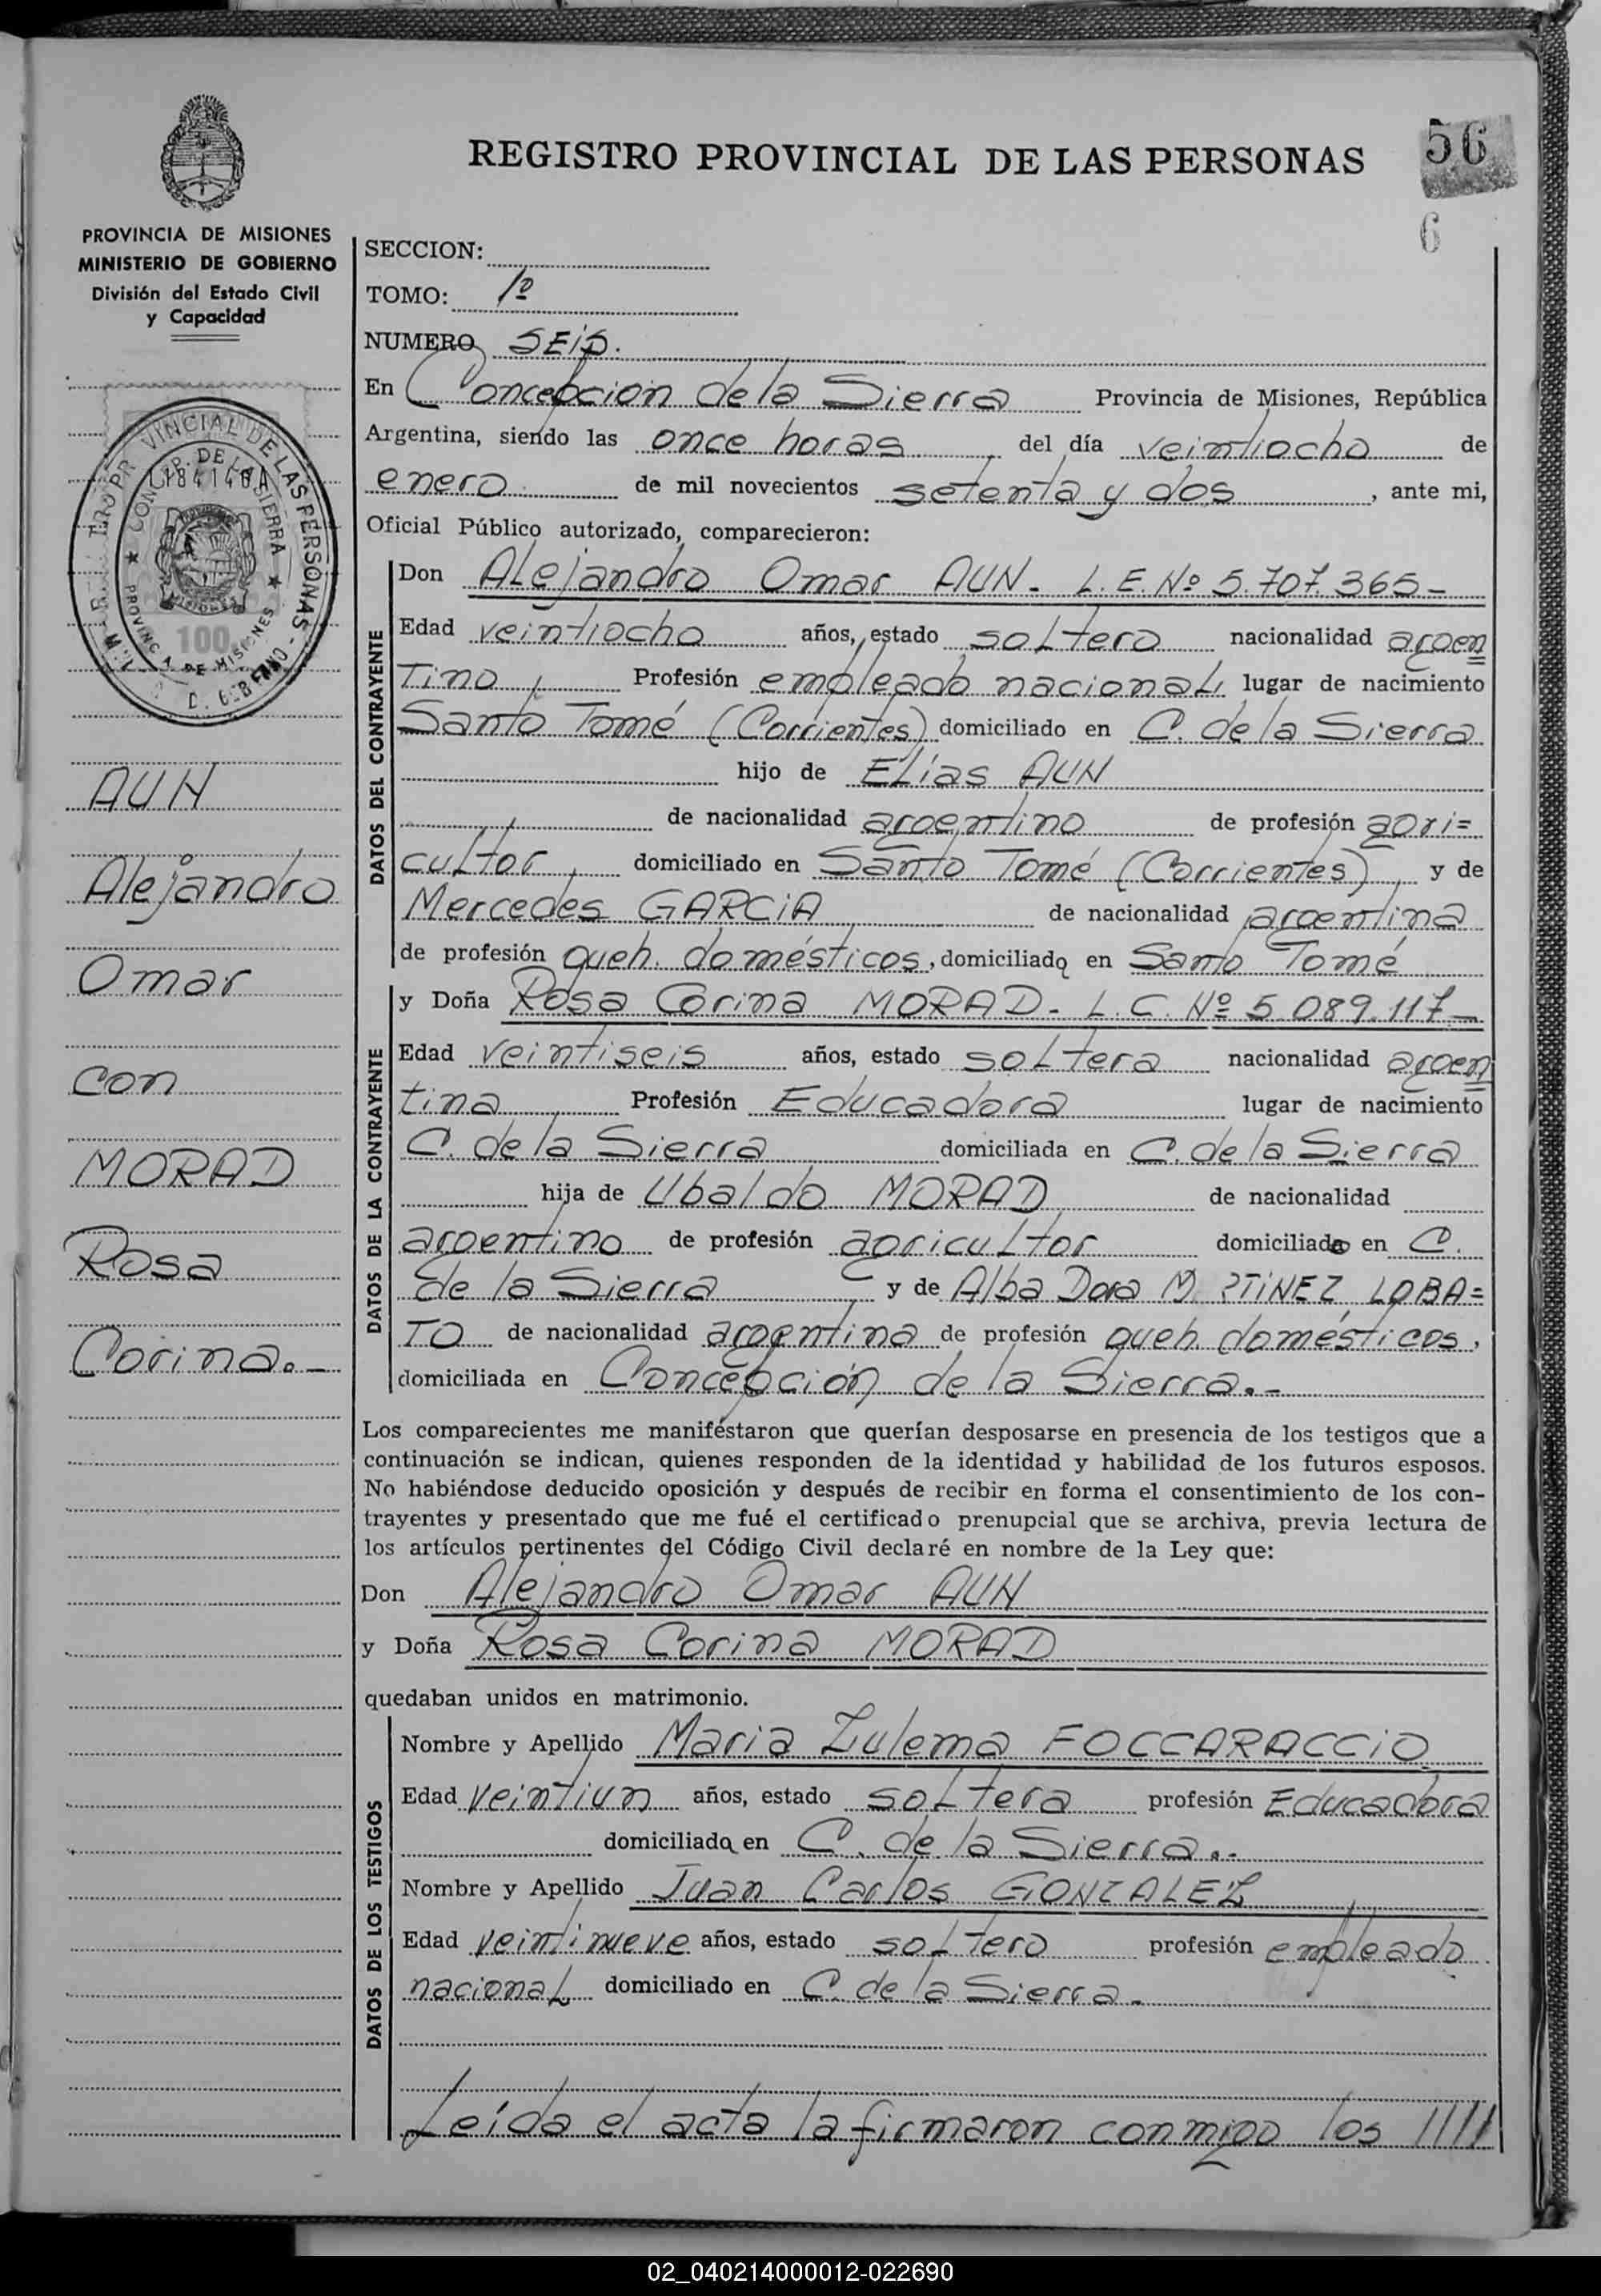 REGISTRO PROVINCIAL DE LAS PERSONAS
56
6
PROVINCIA DE MISIONES
MINISTERIO DE GOBIERNO
División del Estado Civil
y Capacidad
VINCIAL DE LAS PERSONAS
DE LA SIERRA
PROVINCIA DE MISIONES
100
AUN
Alejandro
Omar
con
MORAD
Rosa
Corina.-
SECCION:
TOMO: 1º
NUMERO SEiS.
En Concepcion de la Sierra Provincia de Misiones, República
Argentina, siendo las once horas del día veintiocho de
enero de mil novecientos setenta y dos, ante mi,
Oficial Público autorizado, comparecieron:
DATOS DEL CONTRAYENTE
Don Alejandro Omar AUN- L.E. Nº 5.707.365-
Edad veintiocho años, estado soltero nacionalidad argen=
tino, Profesión empleado nacional, lugar de nacimiento
Santo Tomé (Corrientes) domiciliado en C. de la Sierra
hijo de Elías AUN
de nacionalidad argentino de profesión agri=
cultor, domiciliado en Santo Tomé (Corrientes), y de
Mercedes GARCiA de nacionalidad argentina
de profesión queh. domésticos, domiciliada en Santo Tomé
DATOS DE LA CONTRAYENTE
y Doña Rosa Corina MORAD- L.C. Nº 5.089.117-
Edad veintiseis años, estado soltera nacionalidad argen=
tina Profesión Educadora lugar de nacimiento
C. de la Sierra domiciliada en C. de la Sierra
hija de Ubaldo MORAD de nacionalidad
argentino de profesión agricultor domiciliado en C.
de la Sierra y de Alba Dora LOBA=
TO de nacionalidad argentina de profesión queh. domésticos,
domiciliada en Concepción de la Sierra.-
Los comparecientes me manifestaron que querían desposarse en presencia de los testigos que a
continuación se indican, quienes responden de la identidad y habilidad de los futuros esposos.
No habiéndose deducido oposición y después de recibir en forma el consentimiento de los con-
trayentes y presentado que me fué el certificado prenupcial que se archiva, previa lectura de
los artículos pertinentes del Código Civil declaré en nombre de la Ley que:
Don Alejandro Omar AUN
y Doña Rosa Corina MORAD
quedaban unidos en matrimonio.
DATOS DE LOS TESTIGOS
Nombre y Apellido Maria Zulema FOCCARACCiO
Edad veintiun años, estado soltera profesión Educadora
domiciliada en C. de la Sierra.-
Nombre y Apellido Juan Carlos GONZALEZ
Edad veintinueve años, estado soltero profesión empleado
nacional domiciliado en C. de la Sierra.-
Leída el acta la firmaron conmigo los ////
02_040214000012-022690